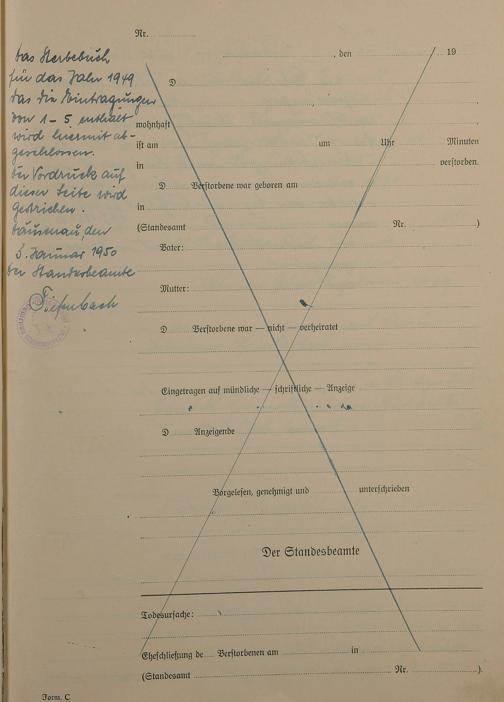 Nr.
, den 19
Das Sterbebuch
für das Jahr 1949
das die Eintragungen
von 1-5 enthält
wird hiermit ab-
geschlossen.
Der Vordruck auf
dieser Seite wird
gestrichen.
Däusenau, den
3. Januar 1950
Der Standesbeamte
Tiefenbach
D
wohnhaft
ist am um Uhr Minuten
in verstorben.
D Verstorbene war geboren am
in
(Standesamt Nr. )
Vater:
Mutter:
D Verstorbene war — nicht — verheiratet
Eingetragen auf mündliche — schriftliche — Anzeige
D Anzeigende
Vorgelesen, genehmigt und unterschrieben
Der Standesbeamte
Todesursache:
Eheschließung de Verstorbenen am in
(Standesamt Nr. ).
Form. C